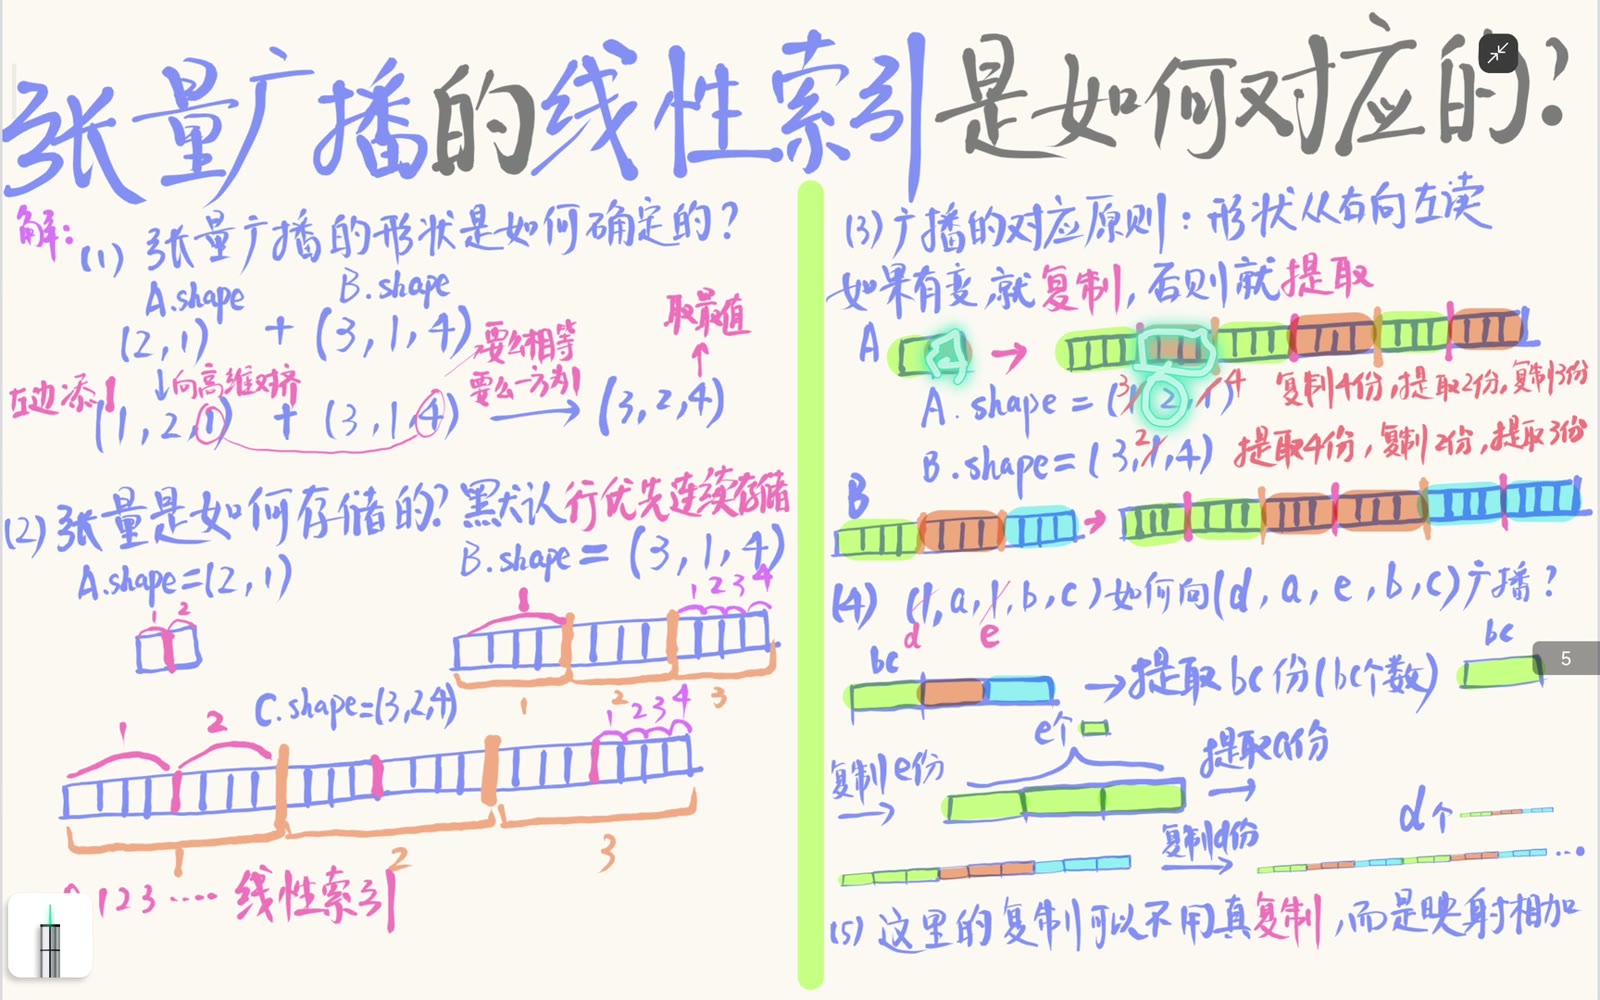 张量广播的线性索引是如何对应的?
解:
(1) 张量广播的形状是如何确定的?
A.shape B.shape
(2,1) + (3,1,4)
要么相等
要么一方为1
取最值
左边添1
向高维对齐
(1,2,1) + (3,1,4) → (3,2,4)
(2) 张量是如何存储的? 默认行优先连续存储
A.shape=(2,1) B.shape=(3,1,4)
1 2
1
1 2 3 4
1 2 3
C.shape=(3,2,4)
1 2
1 2 3 4
1 2 3
0 1 2 3 ···· 线性索引
(3) 广播的对应原则: 形状从右向左读
如果有变,就复制,否则就提取
A →
A.shape = (3 1, 2, 1) 4 复制4份,提取2份,复制3份
B.shape = (3, 2 1, 4) 提取4份,复制2份,提取3份
B →
(4) (1,a,1,b,c)如何向(d,a,e,b,c)广播?
d e
bc → 提取bc份(bc个数) bc
e个
复制e份 → 提取a份 →
复制d份 → d个
···
(5) 这里的复制可以不用真复制,而是映射相加
5